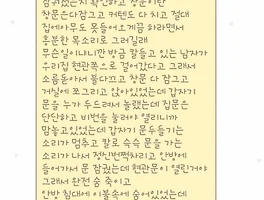 잠궈졌는지 확인하고 창문이란
창문은다잠그고 커텐도 다 치고 절대
집에아무도 못들어오게끔 하라면서
흥분한 목소리로 그러길래
무슨일이냐니깐 방금 칼들고 있는 남자가
우리집 현관쪽으로 걸어갔다고 그래서
소름돋아서 불다끄고 창문 다 잠그고
거실에 쪼그리고 앉아있었는데 갑자기
문을 누가 두드려서 놀랬는데 집문은
단단하고 비번을 눌러야 열리니까
맘놓고있었는데 갑자기 문두들기는
소리가 멈추고 칼로 슥슥 문을 가는
소리가 나서 정신번쩍차리고 안방에
들어가서 문 잠궜는데 현관문이 열린거야
그래서 완전 숨 죽이고
안방 침대에 이불속에 숨어있었는데